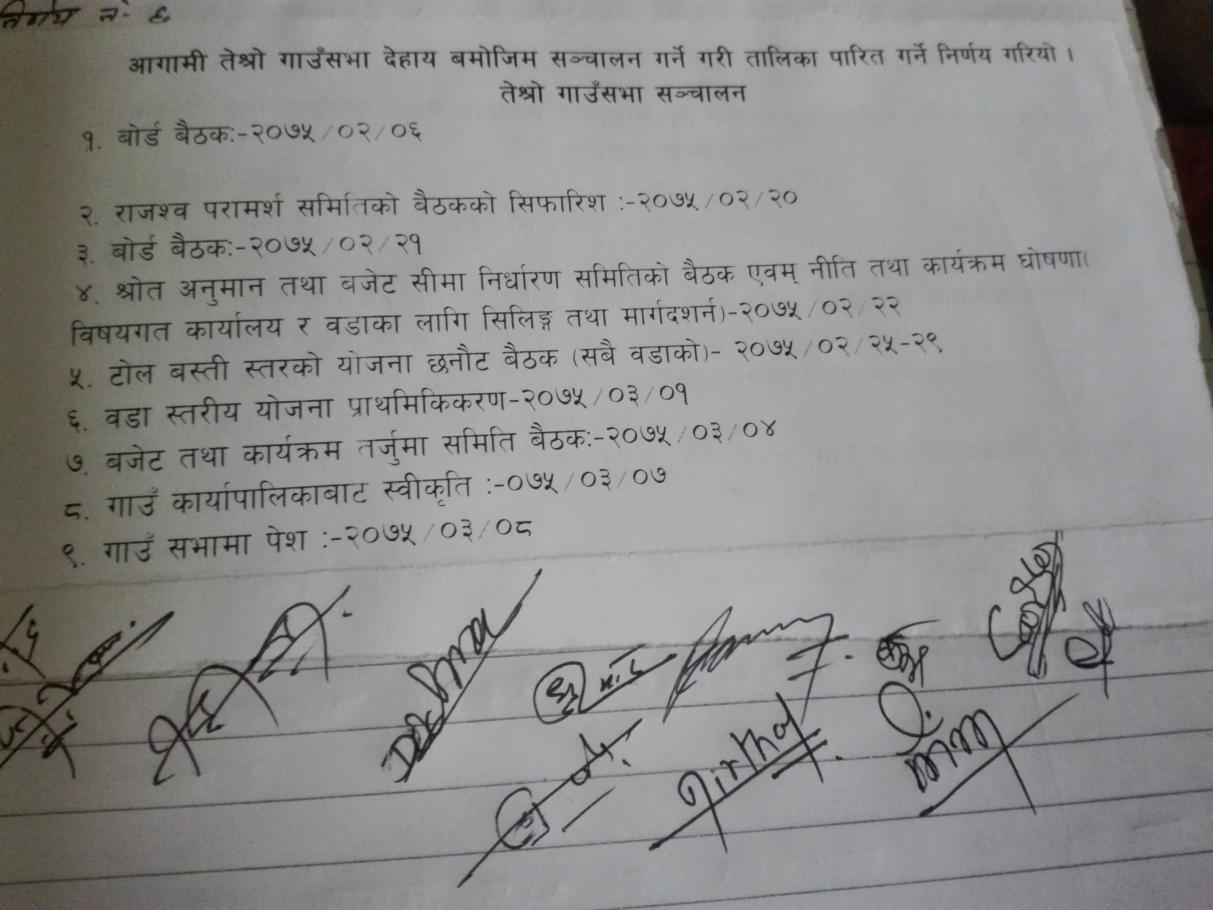 निर्णय नं- ६
आगामी तेश्रो गाउँसभा देहाय बमोजिम सञ्चालन गर्ने गरी तालिका पारित गर्ने निर्णय गरियो ।
तेश्रो गाउँसभा सञ्चालन
१. बोर्ड बैठकः-२०७५/०२/०६
२. राजश्व परामर्श समितिको बैठकको सिफारिश :-२०७५/०२/२०
३. बोर्ड बैठकः-२०७५/०२/२१
४. श्रोत अनुमान तथा बजेट सीमा निर्धारण समितिको बैठक एवम् नीति तथा कार्यक्रम घोषणा(
विषयगत कार्यालय र वडाका लागि सिलिङ्ग तथा मार्गदशर्न)-२०७५/०२/२२
५. टोल बस्ती स्तरको योजना छनौट बैठक (सबै वडाको)- २०७५/०२/२५-२९
६. वडा स्तरीय योजना प्राथमिकिकरण-२०७५/०३/०१
७. बजेट तथा कार्यक्रम तर्जुमा समिति बैठकः-२०७५/०३/०४
८. गाउँ कार्यापालिकाबाट स्वीकृति :-०७५/०३/०७
९. गाउँ सभामा पेश :-२०७५/०३/०८